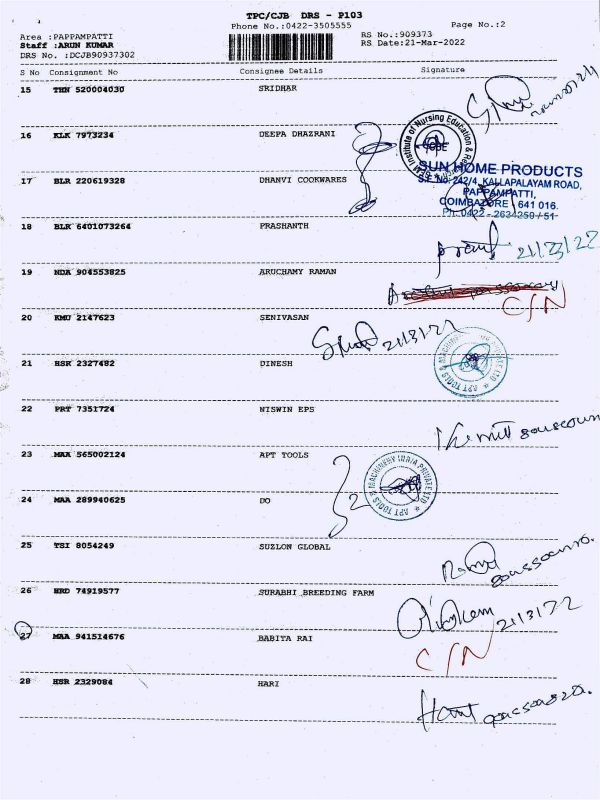 TPC/CJB DRS - P103
Phone No.:0422-3505555 Page No.:2
Area :PAPPAMPATTI RS No.:909373
Staff :ARUN KUMAR RS Date:21-Mar-2022
DRS No. :DCJB90937302
S No Consignment No Consignee Details Signature
15 THN 520004030 SRIDHAR
16 KLK 7973234 DEEPA DHAZRANI
Institute of Nursing Education &
SUN HOME PRODUCTS
17 BLR 220619328 DHANVI COOKWARES
S.F. No. 242/4, KALLAPALAYAM ROAD,
PAPPAMPATTI,
COIMBATORE - 641 016.
Ph: 0422 - 2634250 / 51
18 BLR 6401073264 PRASHANTH
21/23/22
19 NDA 904553825 ARUCHAMY RAMAN
C/N
20 KMU 2147623 SENIVASAN
21/3/22
21 HSR 2327482 DINESH
APT TOOLS & MACHINERY INDIA PRIVATE LTD
22 PRT 7351724 NISWIN EPS
23 MAA 565002124 APT TOOLS
APT TOOLS & MACHINERY INDIA PRIVATE LTD
2
24 MAA 289940625 DO
25 TSI 8054249 SUZLON GLOBAL
26 HRD 74919577 SURABHI BREEDING FARM
21/3/22
27 MAA 941514676 BABITA RAI
C/N
28 HSR 2329084 HARI